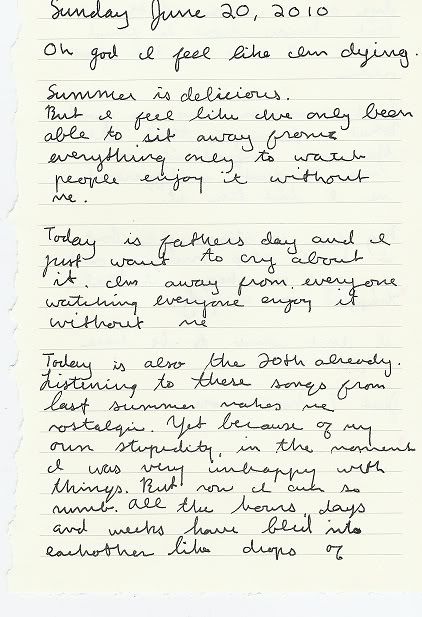 Sunday June 20, 2010
Oh god I feel like Im dying.
Summer is delicious.
But I feel like Ive only been
able to sit away from
everything only to watch
people enjoy it without
me.
Today is fathers day and I
just want to cry about
it. Im away from everyone
watching everyone enjoy it
without me
Today is also the 20th already.
Listening to these songs from
last summer makes me
nostalgic. Yet because of my
own stupidity, in the moment
I was very unhappy with
things. But now I am so
numb. All the hours, days
and weeks have bled into
eachother like drops of